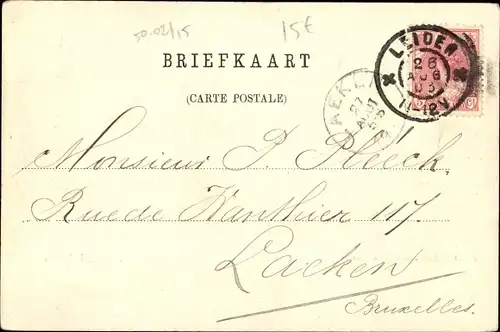 50.02/15
15€
BRIEFKAART
(CARTE POSTALE)
LEIDEN
26
AUG
03
11-12V
27
Monsieur P. Pléeck.
Rue de Wanthier 117.
Laeken
Bruxelles.